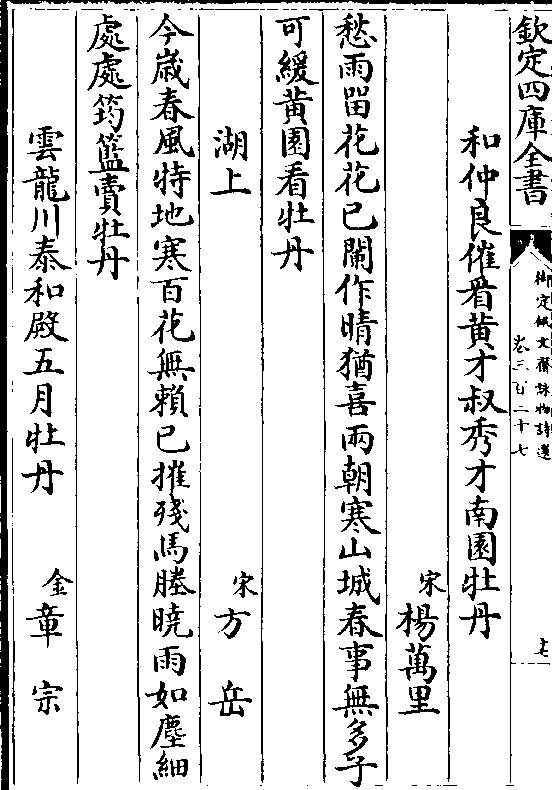 欽定四庫全書
御定佩文齋詠物詩選
卷三百二十七
十七
和仲良催看黃才叔秀才南園牡丹
宋楊萬里
愁雨留花花已闌作晴猶喜兩朝寒山城春事無多子
可緩黃園看牡丹
湖上
宋方岳
今歲春風特地寒百花無賴已摧殘馬塍曉雨如塵細
處處筠籃賣牡丹
雲龍川泰和殿五月牡丹
金章宗